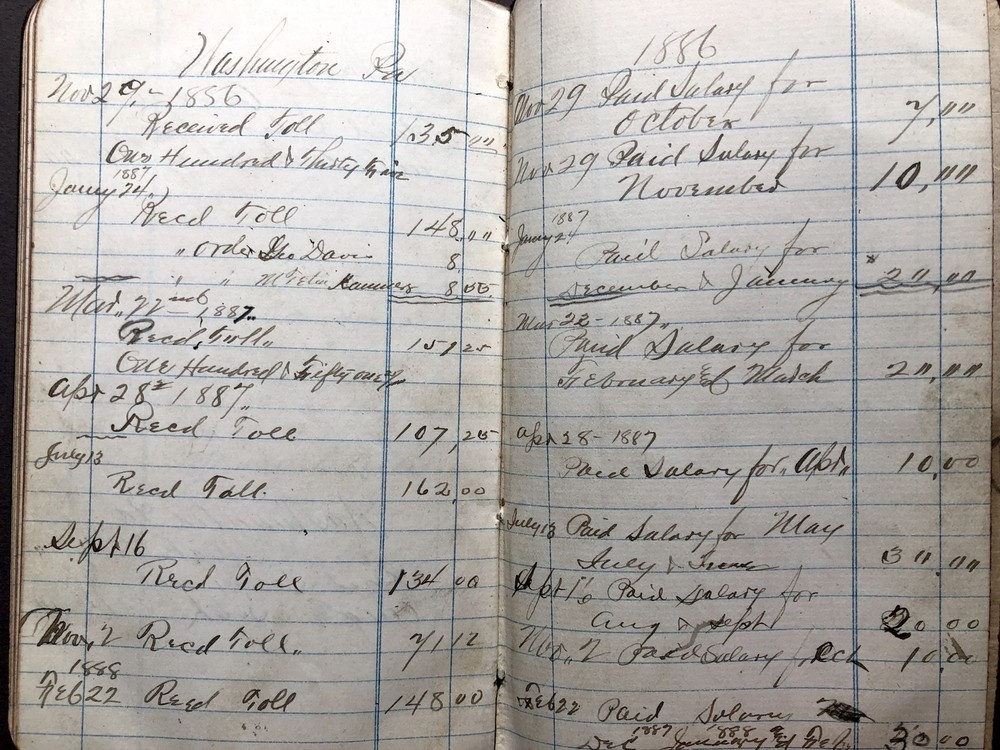 Washington Pa
Nov 29, - 1886
Received Toll 135 ""
One Hundred & Thirty five
1887
Janry 24,
Recd Toll 148, ""
" order Geo Davis 8
" " 8,00
Mar,, 22nd - 1887,,
Recd, Toll,, 151 25
One Hundred & Fifty one
Apr 28th 1887,,
Recd Toll 107,25
July 13
Recd Toll. 162,00
Sept 16
Recd Toll 134 00
Nov, 2 Recd Toll,, 71 12
1888
Feb 22 Recd Toll 148 00
1886
Nov 29 Paid Salary for
October 7, ""
Nov 29 Paid Salary for
November 10, ""
1887
Janry 24
Paid Salary for
December & January 2",""
Mar 22 - 1887,,
Paid Salary for
February & March 2",""
Apr 28 - 1887
Paid Salary for,, Apr,, 10,00
July 13 Paid Salary for May
July & June 3" ,""
Sept 16 Paid Salary for
Aug & Sept 20 00
Nov,, 2 Paid Salary for Oct 10,00
Feb 22
Paid Salary
1887 1888
Dec January & Feb. 30 00